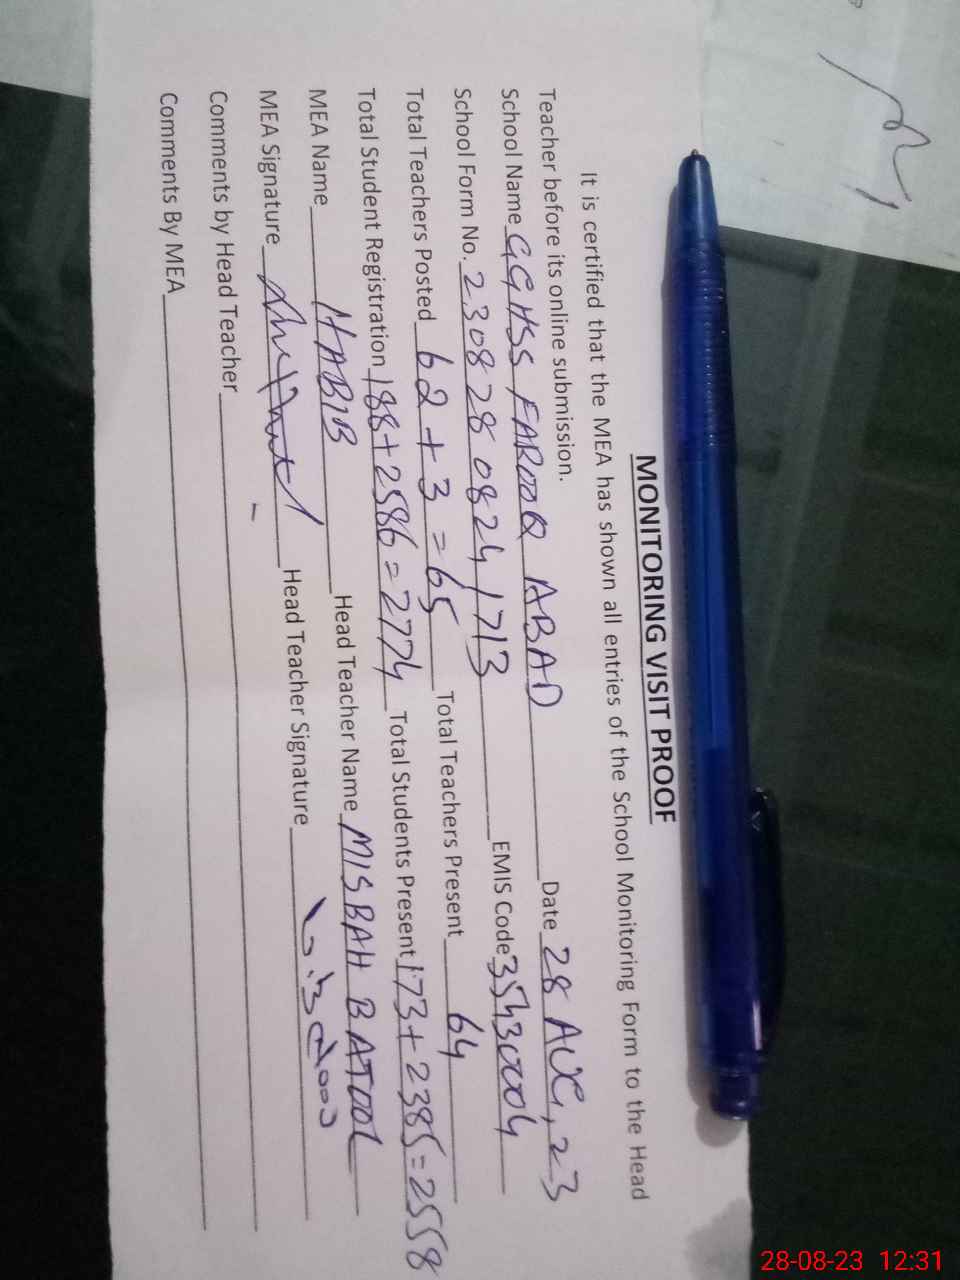 MONITORING VISIT PROOF
It is certified that the MEA has shown all entries of the School Monitoring Form to the Head
Teacher before its online submission.
School Name GGHSS FAROOQ ABAD Date 28 AUG, 23
School Form No. 230828 0824 1713 EMIS Code 35430004
Total Teachers Posted 62 + 3 = 65 Total Teachers Present 64
Total Student Registration 188+2586=2774 Total Students Present 173+2385=2558
MEA Name HABIB Head Teacher Name MISBAH BATOOL
MEA Signature Head Teacher Signature
Comments by Head Teacher
Comments By MEA
28-08-23 12:31